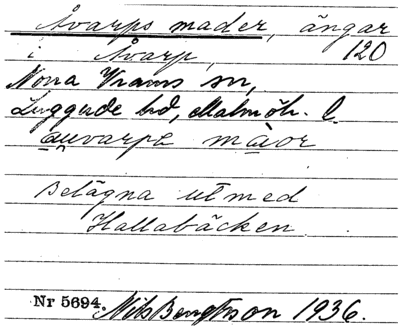 Åvarps mader, ängar
i Åvarp, 120
Norra Vrams sn,
Luggude hd, Malmöh. l.
auvarps maor
Belägna utmed
Hallabäcken
Nr 5694. Nils Bengtsson 1936.